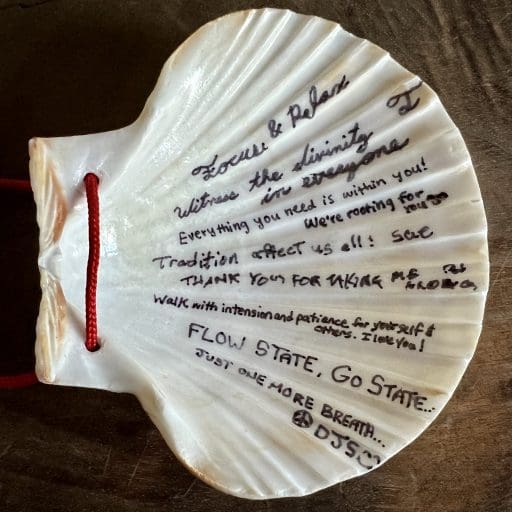 Focus & Relax
I
Witness the divinity
in everyone
Everything you need is within you!
We're rooting for
you JO
Tradition affect us all!
THANK YOU FOR TAKING ME
Walk with intension and patience for yourself &
others. I love you!
FLOW STATE, GO STATE...
JUST ONE MORE BREATH...
☮ DJS